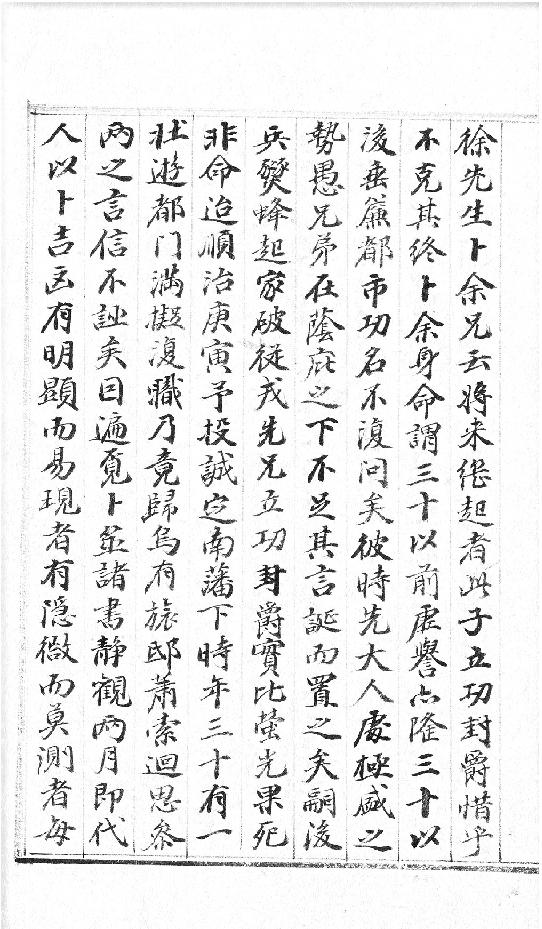 徐先生卜余兄云將来繼起者此子立功封爵惜乎
不克其終卜余身命謂三十以前虛譽亦隆三十以
後垂簾都市功名不復问矣彼時先大人處極盛之
勢愚兄弟在蔭庇之下不足其言誕而置之矣嗣後
兵燹蜂起家破從戎先兄立功封爵實比螢光果死
非命迨順治庚寅予投誠定南藩下時年三十有一
壯遊都门滿擬復職乃竟歸烏有旅邸萧索迴思叅
两之言信不誣矣因遍覓卜筮諸書静觀两月即代
人以卜吉凶有明顯而易現者有隐微而莫測者每